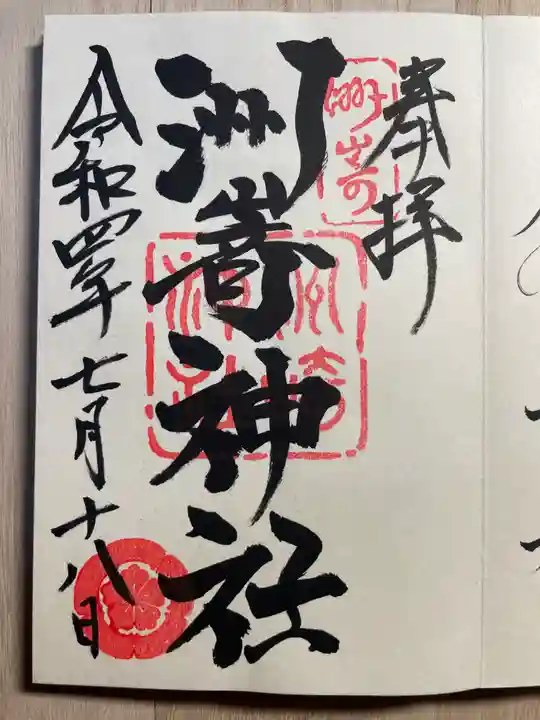 奉拝
洲嵜神社
令和四年七月十八日